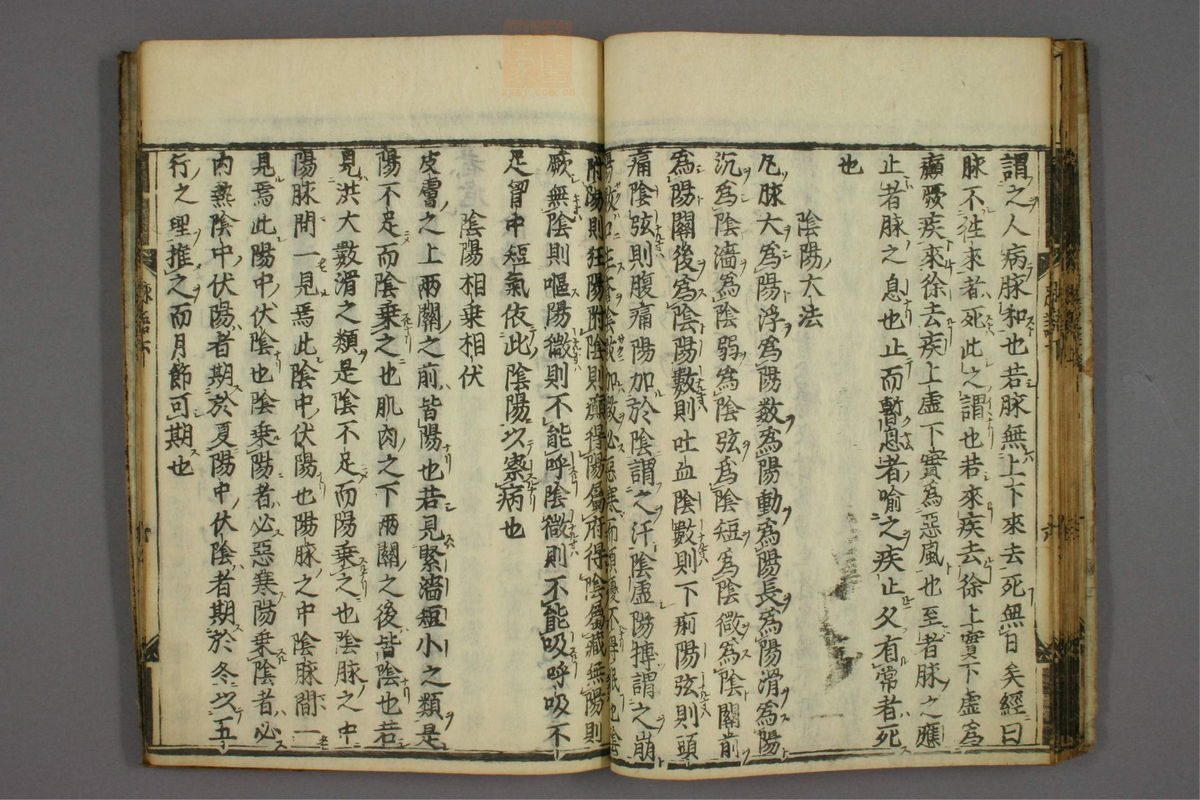 謂之人病脉和也若脉無上下來去死無日矣經曰
脉不往來者死此之謂也若來疾去徐上實下虛爲
癲厥疾來徐去疾上虛下實爲惡風也至者脉之應
止者脉之息也止而暫息者喻之疾止久有常者死
也
陰陽大法
凡脉大爲陽浮爲陽数爲陽動爲陽長爲陽滑爲陽
沉爲陰濇爲陰弱爲陰弦爲陰短爲陰微爲陰關前
爲陽關後爲陰陽數則吐血陰數則下痢陽弦則頭
痛陰弦則腹痛陽加於陰謂之汗陰虛陽搏謂之崩
附陽則狂陽附陰則癲得陽屬府得陰屬藏無陽則
厥無陰則嘔陽微則不能呼陰微則不能吸呼吸不
足胷中短氣依此陰陽以察病也
陰陽相乗相伏
皮膚之上兩關之前皆陽也若見緊濇短小之類是
陽不足而陰乗之也肌肉之下兩關之後皆陰也若
見洪大數滑之類是陰不足而陽乗之也陰脉之中
陽脉間一見焉此陰中伏陽也陽脉之中陰脉間一
見焉此陽中伏陰也陰乗陽者必惡寒陽乗陰者必
內熱陰中伏陽者期於夏陽中伏陰者期於冬以五
行之理推之而月節可期也